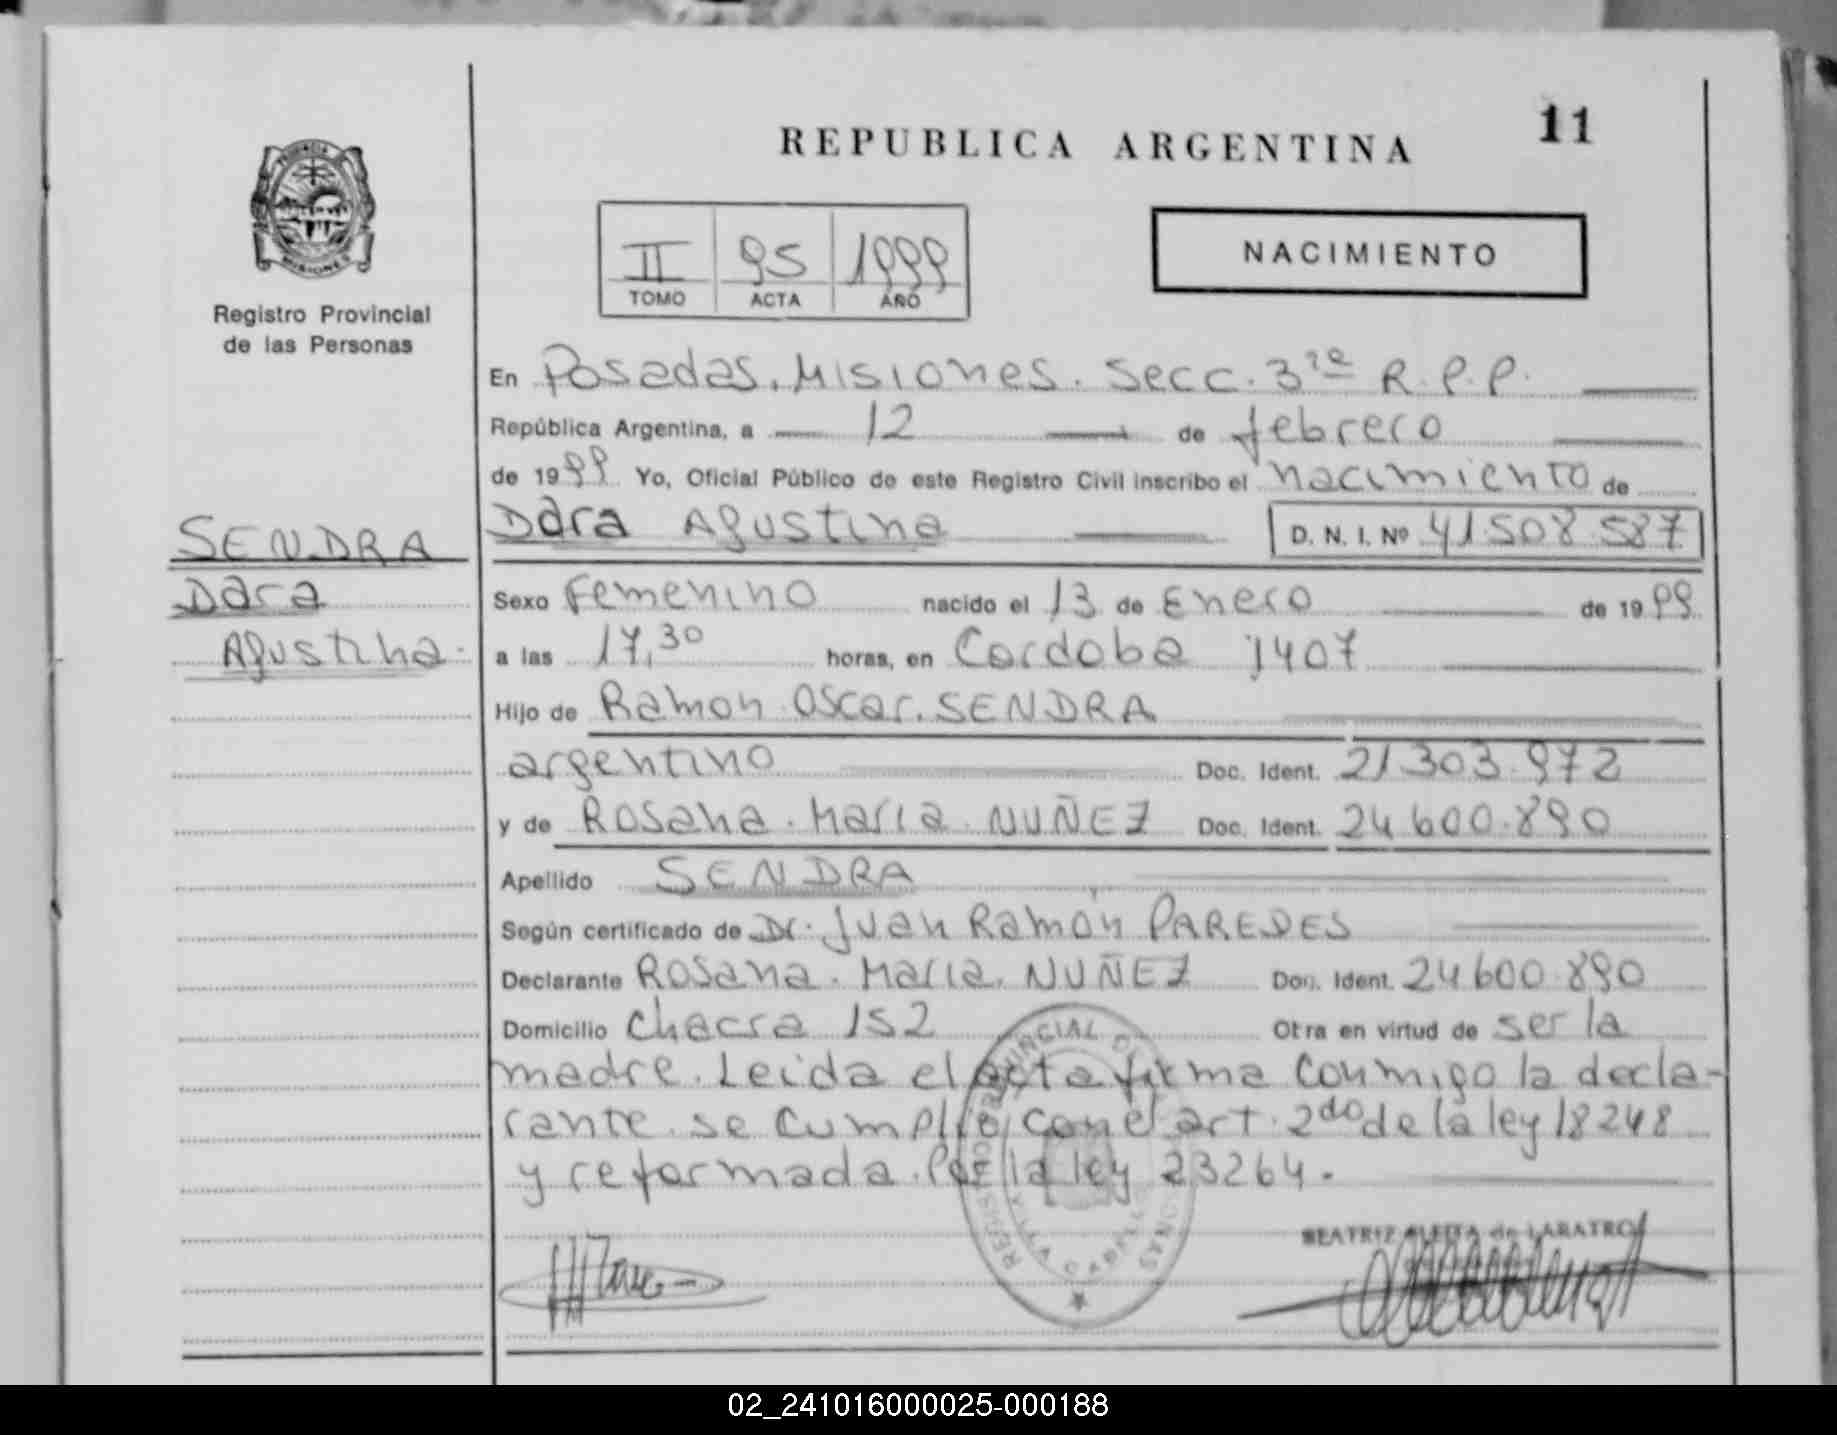 REPUBLICA ARGENTINA
11
PROVINCIA
MISIONES
Registro Provincial
de las Personas
II 95 1999
TOMO ACTA AÑO
NACIMIENTO
En Posadas. Misiones. Secc. 3ra R.P.P.
República Argentina, a 12 de febrero
de 1999 Yo, Oficial Público de este Registro Civil inscribo el nacimiento de
Dara Agustina D. N. I. Nº 41.508.587
SENDRA
Dara
Agustina.
Sexo Femenino nacido el 13 de Enero de 1999
a las 17,30 horas, en Cordoba 1407
Hijo de Ramon Oscar. SENDRA
argentino Doc. Ident. 21303.972
y de Rosana. Maria. NUÑEZ Doc. Ident. 24600.890
Apellido SENDRA
Según certificado de Dr. Juan Ramón PAREDES
Declarante Rosana. Maria. NUÑEZ Doc. Ident. 24600.890
Domicilio Chacra 152 Otra en virtud de ser la
madre. Leida el acta firma conmigo la decla-
rante. se cumplió con el art. 2do de la ley 18248
y reformada. Por la ley 23264.
BEATRIZ de LABATRO
02_241016000025-000188